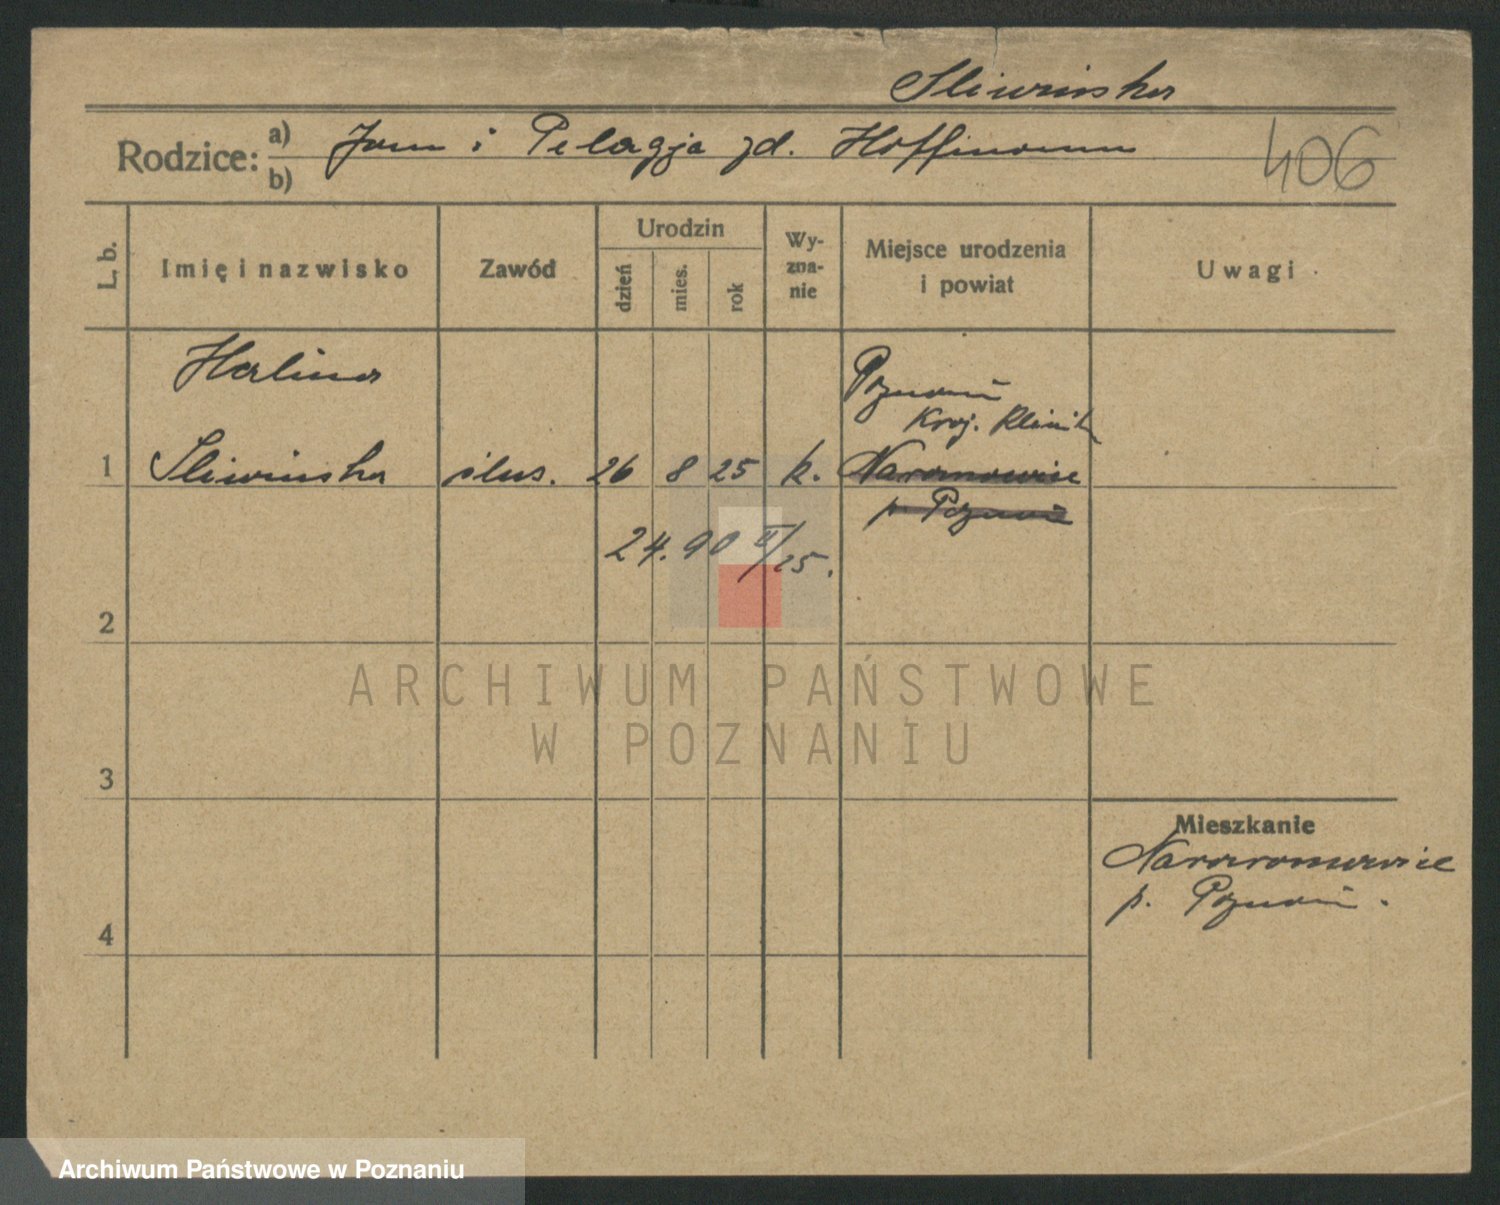 Sliwinska
Rodzice: a) Jan i Pelagja zd. Hoffmann
b)
406
L. b.
Imię i nazwisko
Zawód
Urodzin
dzień
mies.
rok
Wy-
zna-
nie
Miejsce urodzenia
i powiat
Uwagi
Halina
Poznań
Kraj. Klinika
1 Sliwinska 26 8 25 k. Naramowice
p. Poznań
24.90 II/25.
2
ARCHIWUM PAŃSTWOWE
W POZNANIU
3
Mieszkanie
Naramowice
p. Poznań.
4
Archiwum Państwowe w Poznaniu